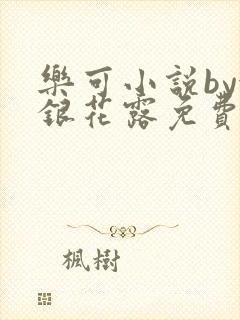 樂可小說by
銀花露免費
楓樹